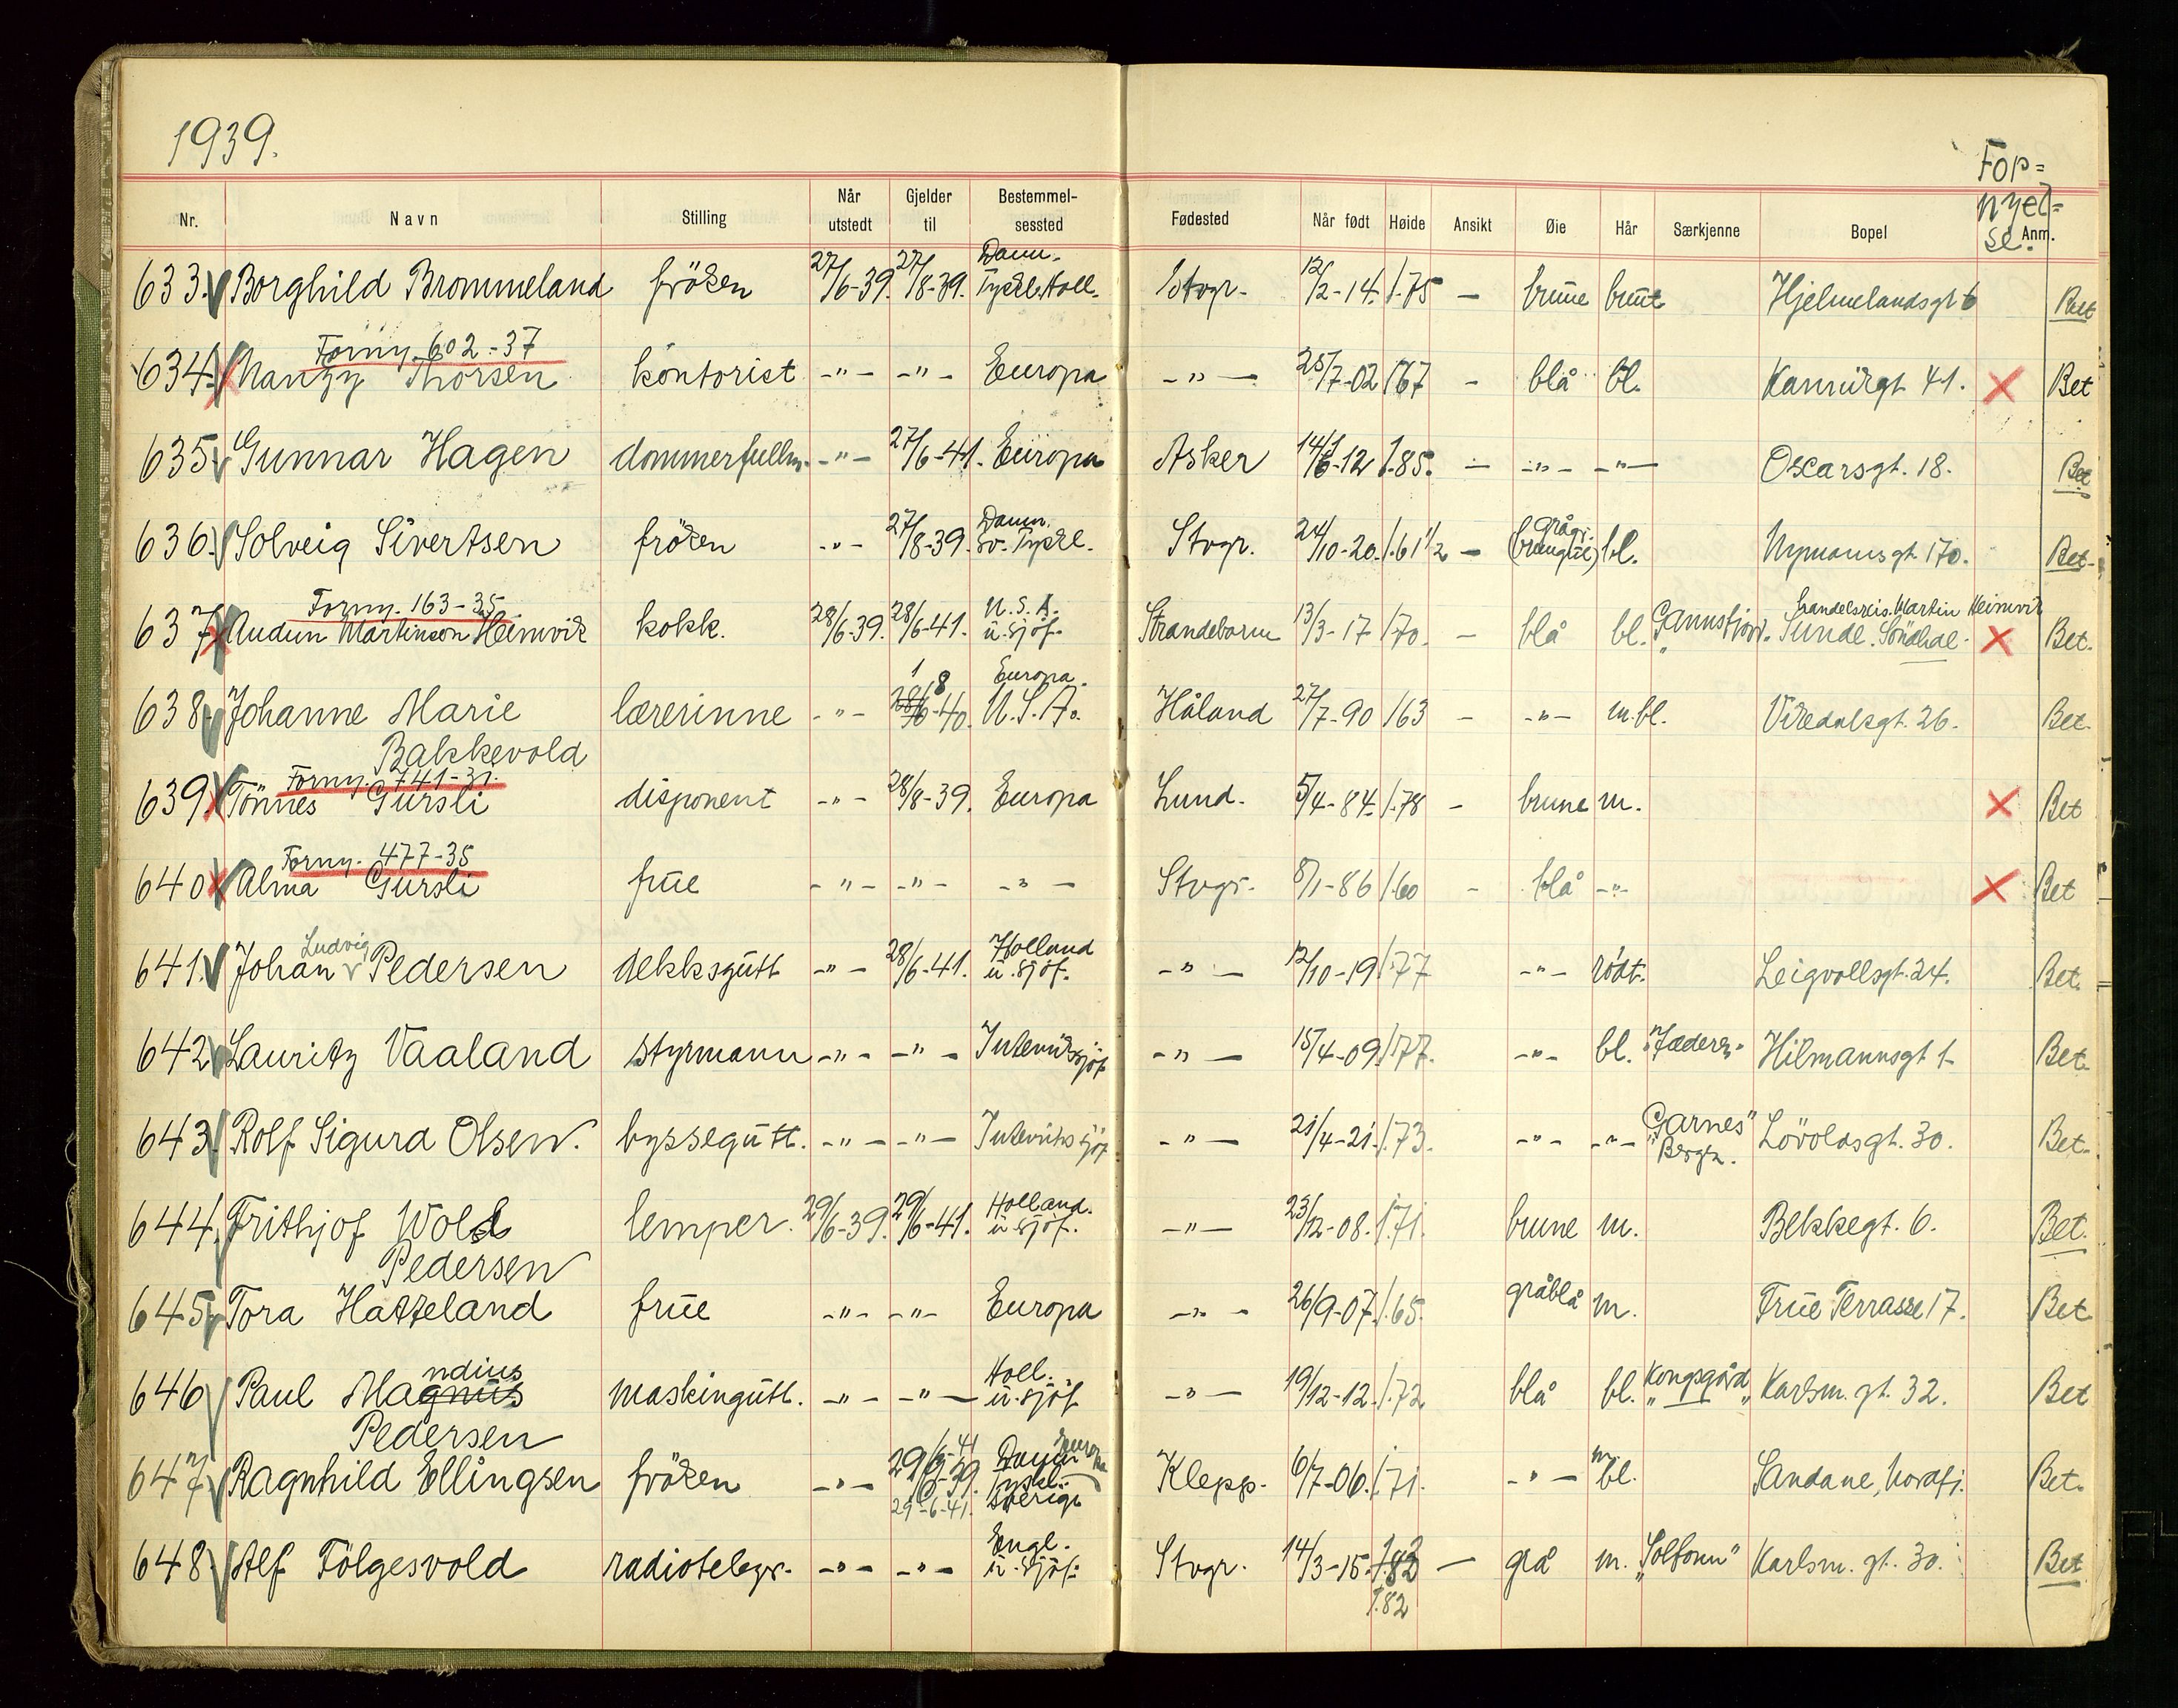 1939.
Fop=
nyel=
se.
Nr. Navn Stilling Når utstedt Gjelder til Bestemmel-sessted Fødested Når født Høide Ansikt Øie Hår Særkjenne Bopel Anm.
Danm.
633. Borghild Brommeland fröken 27/6-39. 27/8-39. Tyskl. Holl. Stvgr. 12/2-14. 1.75 - brune brunt Hjelmelandsgt 6 Bet
Forny. 602-37
634. Nanzy Thorsen kontorist -"- -"- Europa -"- 25/7-02 167 - blå bl. Kannikgt 41. X Bet
635 Gunnar Hagen dommerfullm. -"- 27/6-41. Europa Asker 14/6-12 1.85. - -"- -"- Oscarsgt. 18. Bet
Danm. grågr.
636. Solveig Sivertsen fröken -"- 27/8-39. Sv. Tyskl. Stvgr. 24/10-20. 1.61 1/2 - bl. Nymansgt 170. Bet.
Forny. 163-35 U.S.A. Handelsreis. Martin Heimvik
637 Audun Martinson Heimvik kokk. 28/6-39. 28/6-41. u. sjöf. Strandebarm 13/3-17 170. - blå bl. Gannsfjord. Sunde. Söndhdl. X Bet.
1 8 Europa.
638. Johanne Marie lærerinne -"- 28/6-40. U.S.A. Håland 27/7-90 163 - -"- m.bl. Vikedalsgt. 26. Bet.
Bakkevold
Forny. 741-31.
639. Tönnes Gursli disponent -"- 28/8-39. Europa Lund. 5/4-84. 1.78 - brune m. X Bet
Forny. 477-35
640 Alma Gursli frue -"- -"- -"- Stvgr. 8/1-86 1.60 - blå -"- X Bet
Ludvig Holland
641. Johan Pedersen dekksgutt -"- 28/6-41. u. sjöf. -"- 12/10-19. 1.77 -"- rödt. Leigvollsgt. 24. Bet.
642. Lauritz Vaaland styrmann -"- -"- Utenriksjöf -"- 15/4-09. 177. -"- bl. "Jæderen" Hilmannsgt 1 Bet.
Garnes"
643. Rolf Sigurd Olsen. byssegutt. -"- -"- Utenriks sjöf -"- 21/4-21. 1.73. -"- -"- "Bergen. Lövoldsgt. 30. Bet.
Holland.
644. Frithjof Wold lemper. 29/6-39. 29/6-41. u. sjöf. -"- 23/12-08. 1.71. brune m. Bekkegt. 6. Bet.
Pedersen
645. Tora Hatteland frue -"- -"- Europa -"- 26/9-07. 1.65. gråblå m. Frue Terrasse 17. Bet
ndius Holl.
646 Paul Magnus maskingutt. -"- -"- u. sjöf -"- 19/12-12. 1.72 blå bl. "Kongsgård" Karlsm. gt. 32. Bet
Pedersen
29/6-41 Danm Europa
647 Ragnhild Ellingsen fröken -"- 29/8-39. Tyskl. Klepp. 6/7-06. 1.71. -"- m bl. Sandane, Nordfj. Bet.
29-6-41. Sverige
Engl.
648. Alf Fölgesvold radiotelegr. -"- -"- u. sjöf. Stvgr. 14/3-15. 1.82 - grå m. "Solfonn" Karlsm. gt. 30. Bet
1.82